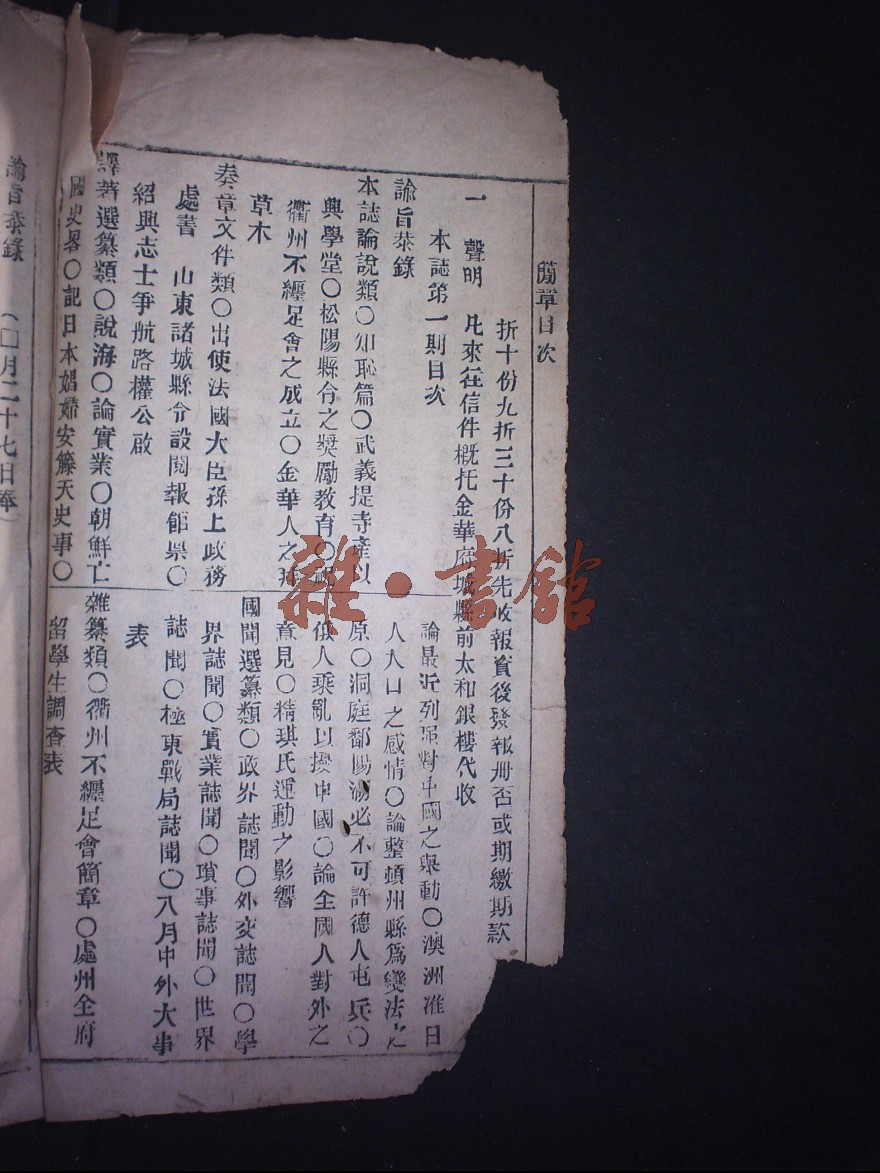 簡章目次
折十份九折三十份八折先收報資後發報冊否或期繳期款
一 聲明 凡來往信件概托金華府城縣前太和銀樓代收
本誌第一期目次
諭旨恭錄
本誌論說類〇知恥篇〇武義提寺產以
興學堂〇松陽縣令之獎勵教育〇
衢州不纏足會之成立〇金華人之
草木
奏章文件類〇出使法國大臣孫上政務
處書 山東諸城縣令設閱報館稟〇
紹興志士爭航路權公啟
譯著選纂類〇說海〇論實業〇朝鮮亡
國史畧〇記日本娼婦安籐夭史事〇
論最近列強對中國之舉動〇澳洲准日
人入口之感情〇論整頓州縣爲變法之
原〇洞庭鄱陽湖必不可許德人屯兵〇
俄人乘亂以擾中國〇論全國人對外之
意見〇精琪氏運動之影響
國聞選纂類〇政界誌聞〇外交誌聞〇學
界誌聞〇實業誌聞〇瑣事誌聞〇世界
誌聞〇極東戰局誌聞〇八月中外大事
表
雜纂類〇衢州不纏足會簡章〇處州全府
留學生調查表
諭旨恭錄 (□月二十七日奉)
雜·書館